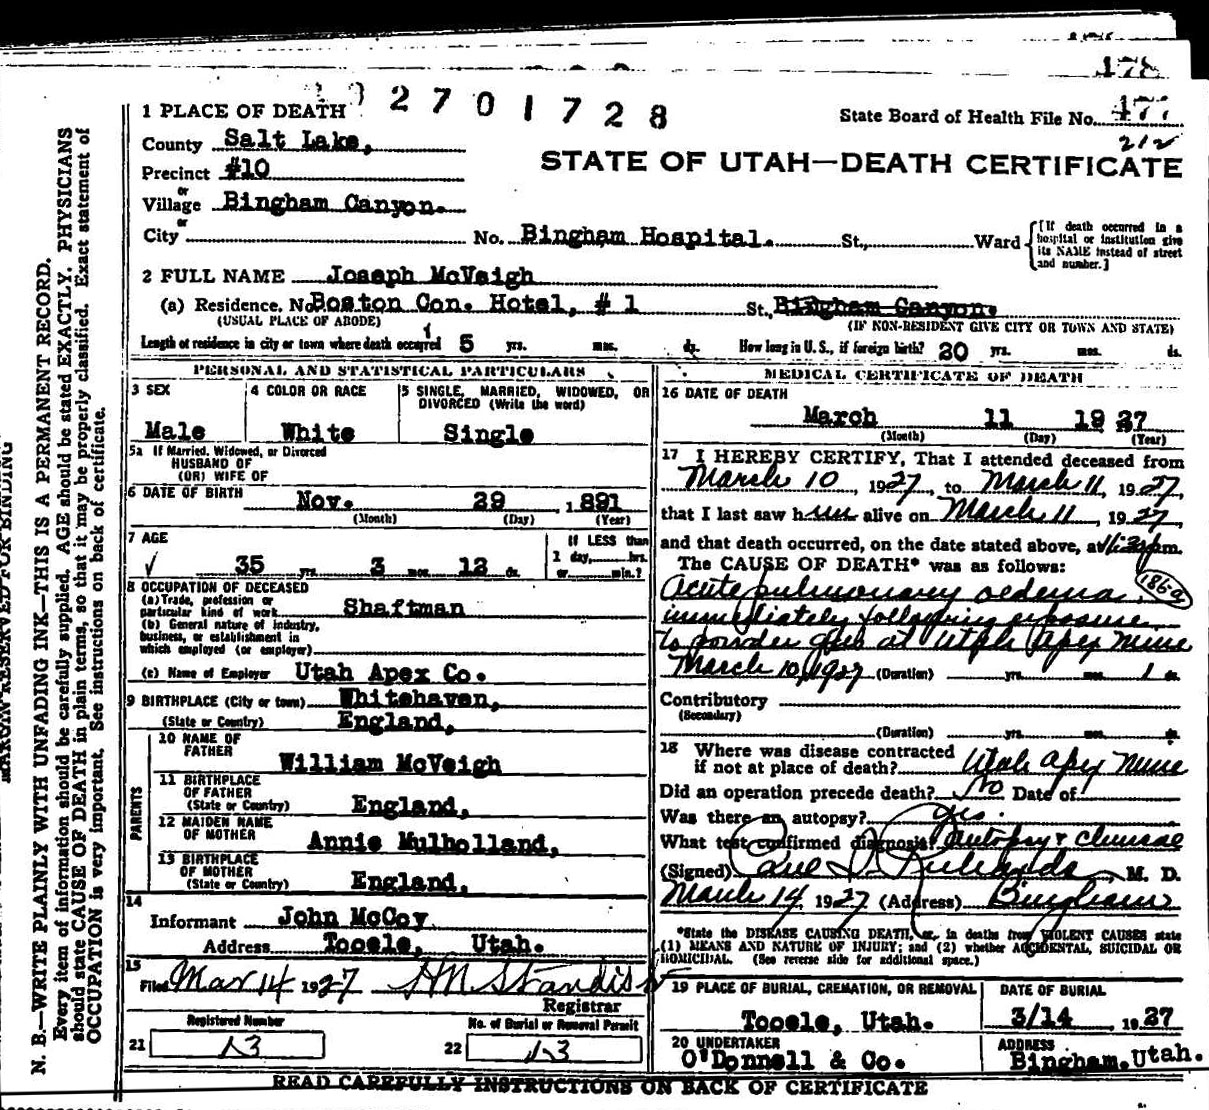 478
2701728
1 PLACE OF DEATH
State Board of Health File No. 477
212
County Salt Lake,
STATE OF UTAH—DEATH CERTIFICATE
Precinct #10
or
Village Bingham Canyon.
or
City No. Bingham Hospital. St., Ward
[If death occurred in a hospital or institution give its NAME instead of street and number.]
2 FULL NAME Joseph McVeigh
(a) Residence. No. Boston Con. Hotel, # 1 St., Bingham Canyon.
(USUAL PLACE OF ABODE) (IF NON-RESIDENT GIVE CITY OR TOWN AND STATE)
Length of residence in city or town where death occurred 5 yrs. mos. ds. How long in U. S., if foreign birth? 20 yrs. mos. ds.
PERSONAL AND STATISTICAL PARTICULARS
3 SEX
Male
4 COLOR OR RACE
White
5 SINGLE, MARRIED, WIDOWED, OR DIVORCED (Write the word)
Single
5a If Married, Widowed, or Divorced
HUSBAND OF
(OR) WIFE OF
6 DATE OF BIRTH Nov. 29 , 1891
(Month) (Day) (Year)
7 AGE
35 yrs. 3 mos. 12 ds.
If LESS than
1 day, hrs.
or min.?
8 OCCUPATION OF DECEASED
(a) Trade, profession or
particular kind of work Shaftman
(b) General nature of industry,
business, or establishment in
which employed (or employer)
(c) Name of Employer Utah Apex Co.
9 BIRTHPLACE (City or town) Whitehaven,
(State or Country) England,
PARENTS
10 NAME OF
FATHER
William McVeigh
11 BIRTHPLACE
OF FATHER
(State or Country) England,
12 MAIDEN NAME
OF MOTHER
Annie Mulholland,
13 BIRTHPLACE
OF MOTHER
(State or Country) England,
14
Informant John McCoy
Address Tooele, Utah.
15
Filed Mar 14 1927 H N Standish
Registrar
Registered Number
21 13
No. of Burial or Removal Permit
22 13
MEDICAL CERTIFICATE OF DEATH
16 DATE OF DEATH
March 11 1927
(Month) (Day) (Year)
17 I HEREBY CERTIFY, That I attended deceased from
March 10, 1927, to March 11, 1927,
that I last saw him alive on March 11, 1927,
and that death occurred, on the date stated above, at m.
The CAUSE OF DEATH* was as follows:
186a
Acute pulmonary oedema
immediately following exposure
to powder gas at Utah Apex Mine
March 10, 1927 (Duration) yrs. mos. 1 ds.
Contributory
(Secondary)
(Duration) yrs. mos. ds.
18 Where was disease contracted
if not at place of death? Utah Apex Mine
Did an operation precede death? No Date of
Was there an autopsy? Yes.
What test confirmed diagnosis? Autopsy & Clinical
(Signed) Richards, M. D.
March 14, 1927 (Address) Bingham
*State the DISEASE CAUSING DEATH, or, in deaths from VIOLENT CAUSES state
(1) MEANS AND NATURE OF INJURY; and (2) whether ACCIDENTAL, SUICIDAL OR
HOMICIDAL. (See reverse side for additional space.)
19 PLACE OF BURIAL, CREMATION, OR REMOVAL
Tooele, Utah.
DATE OF BURIAL
3/14 , 1927
20 UNDERTAKER
O'Donnell & Co.
ADDRESS
Bingham, Utah.
READ CAREFULLY INSTRUCTIONS ON BACK OF CERTIFICATE
MARGIN RESERVED FOR BINDING
N. B.—WRITE PLAINLY WITH UNFADING INK—THIS IS A PERMANENT RECORD.
Every item of information should be carefully supplied. AGE should be stated EXACTLY. PHYSICIANS
should state CAUSE OF DEATH in plain terms, so that it may be properly classified. Exact statement of
OCCUPATION is very important. See instructions on back of certificate.